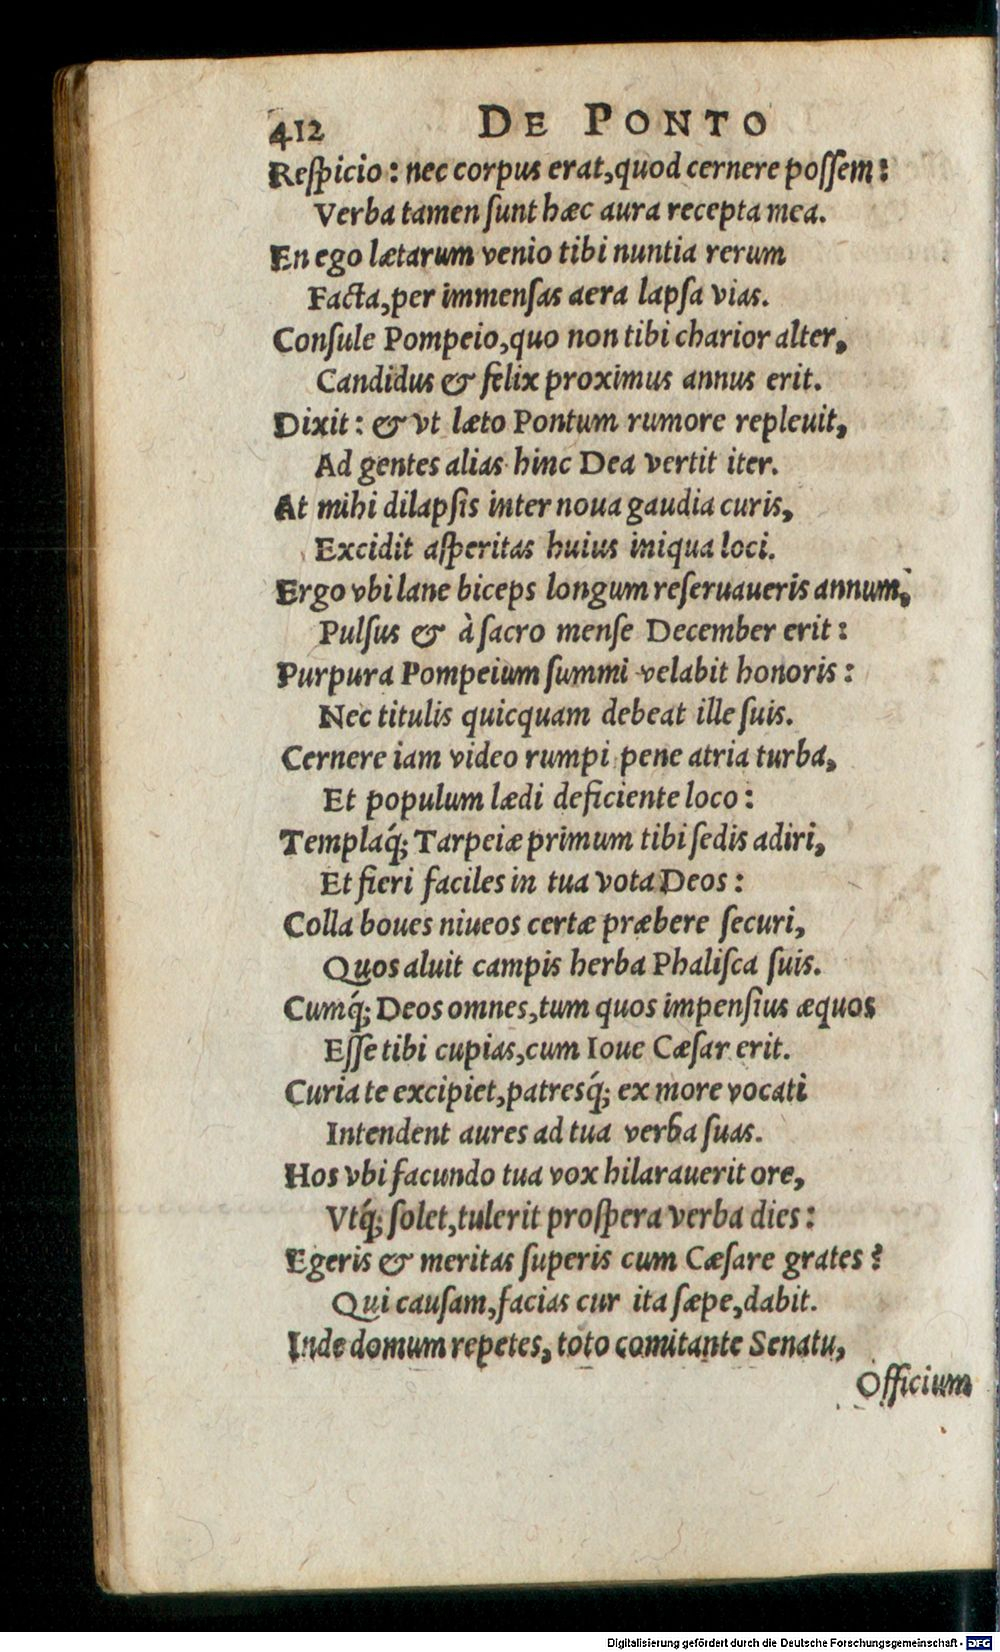 412 DE PONTO
Reſpicio: nec corpus erat, quod cernere poſſem:
Verba tamen ſunt hæc aura recepta mea.
En ego lætarum venio tibi nuntia rerum
Facta, per immenſas aera lapſa vias.
Conſule Pompeio, quo non tibi charior alter,
Candidus & felix proximus annus erit.
Dixit: & vt læto Pontum rumore repleuit,
Ad gentes alias hinc Dea vertit iter.
At mihi dilapſis inter noua gaudia curis,
Excidit aſperitas huius iniqua loci.
Ergo vbi Iane biceps longum reſeruaueris annum,
Pulſus & à ſacro menſe December erit:
Purpura Pompeium ſummi velabit honoris:
Nec titulis quicquam debeat ille ſuis.
Cernere iam video rumpi pene atria turba,
Et populum lædi deficiente loco:
Templaq́; Tarpeiæ primum tibi ſedis adiri,
Et fieri faciles in tua vota Deos:
Colla boues niueos certæ præbere ſecuri,
Quos aluit campis herba Phaliſca ſuis.
Cumq́; Deos omnes, tum quos impenſius æquos
Eſſe tibi cupias, cum Ioue Cæſar erit.
Curia te excipiet, patresq́; ex more vocati
Intendent aures ad tua verba ſuas.
Hos vbi facundo tua vox hilarauerit ore,
Vtq́; ſolet, tulerit proſpera verba dies:
Egeris & meritas ſuperis cum Cæſare grates?
Qui cauſam, facias cur ita ſæpe, dabit.
Inde domum repetes, toto comitante Senatu,
Officium
Digitalisierung gefördert durch die Deutsche Forschungsgemeinschaft - DFG